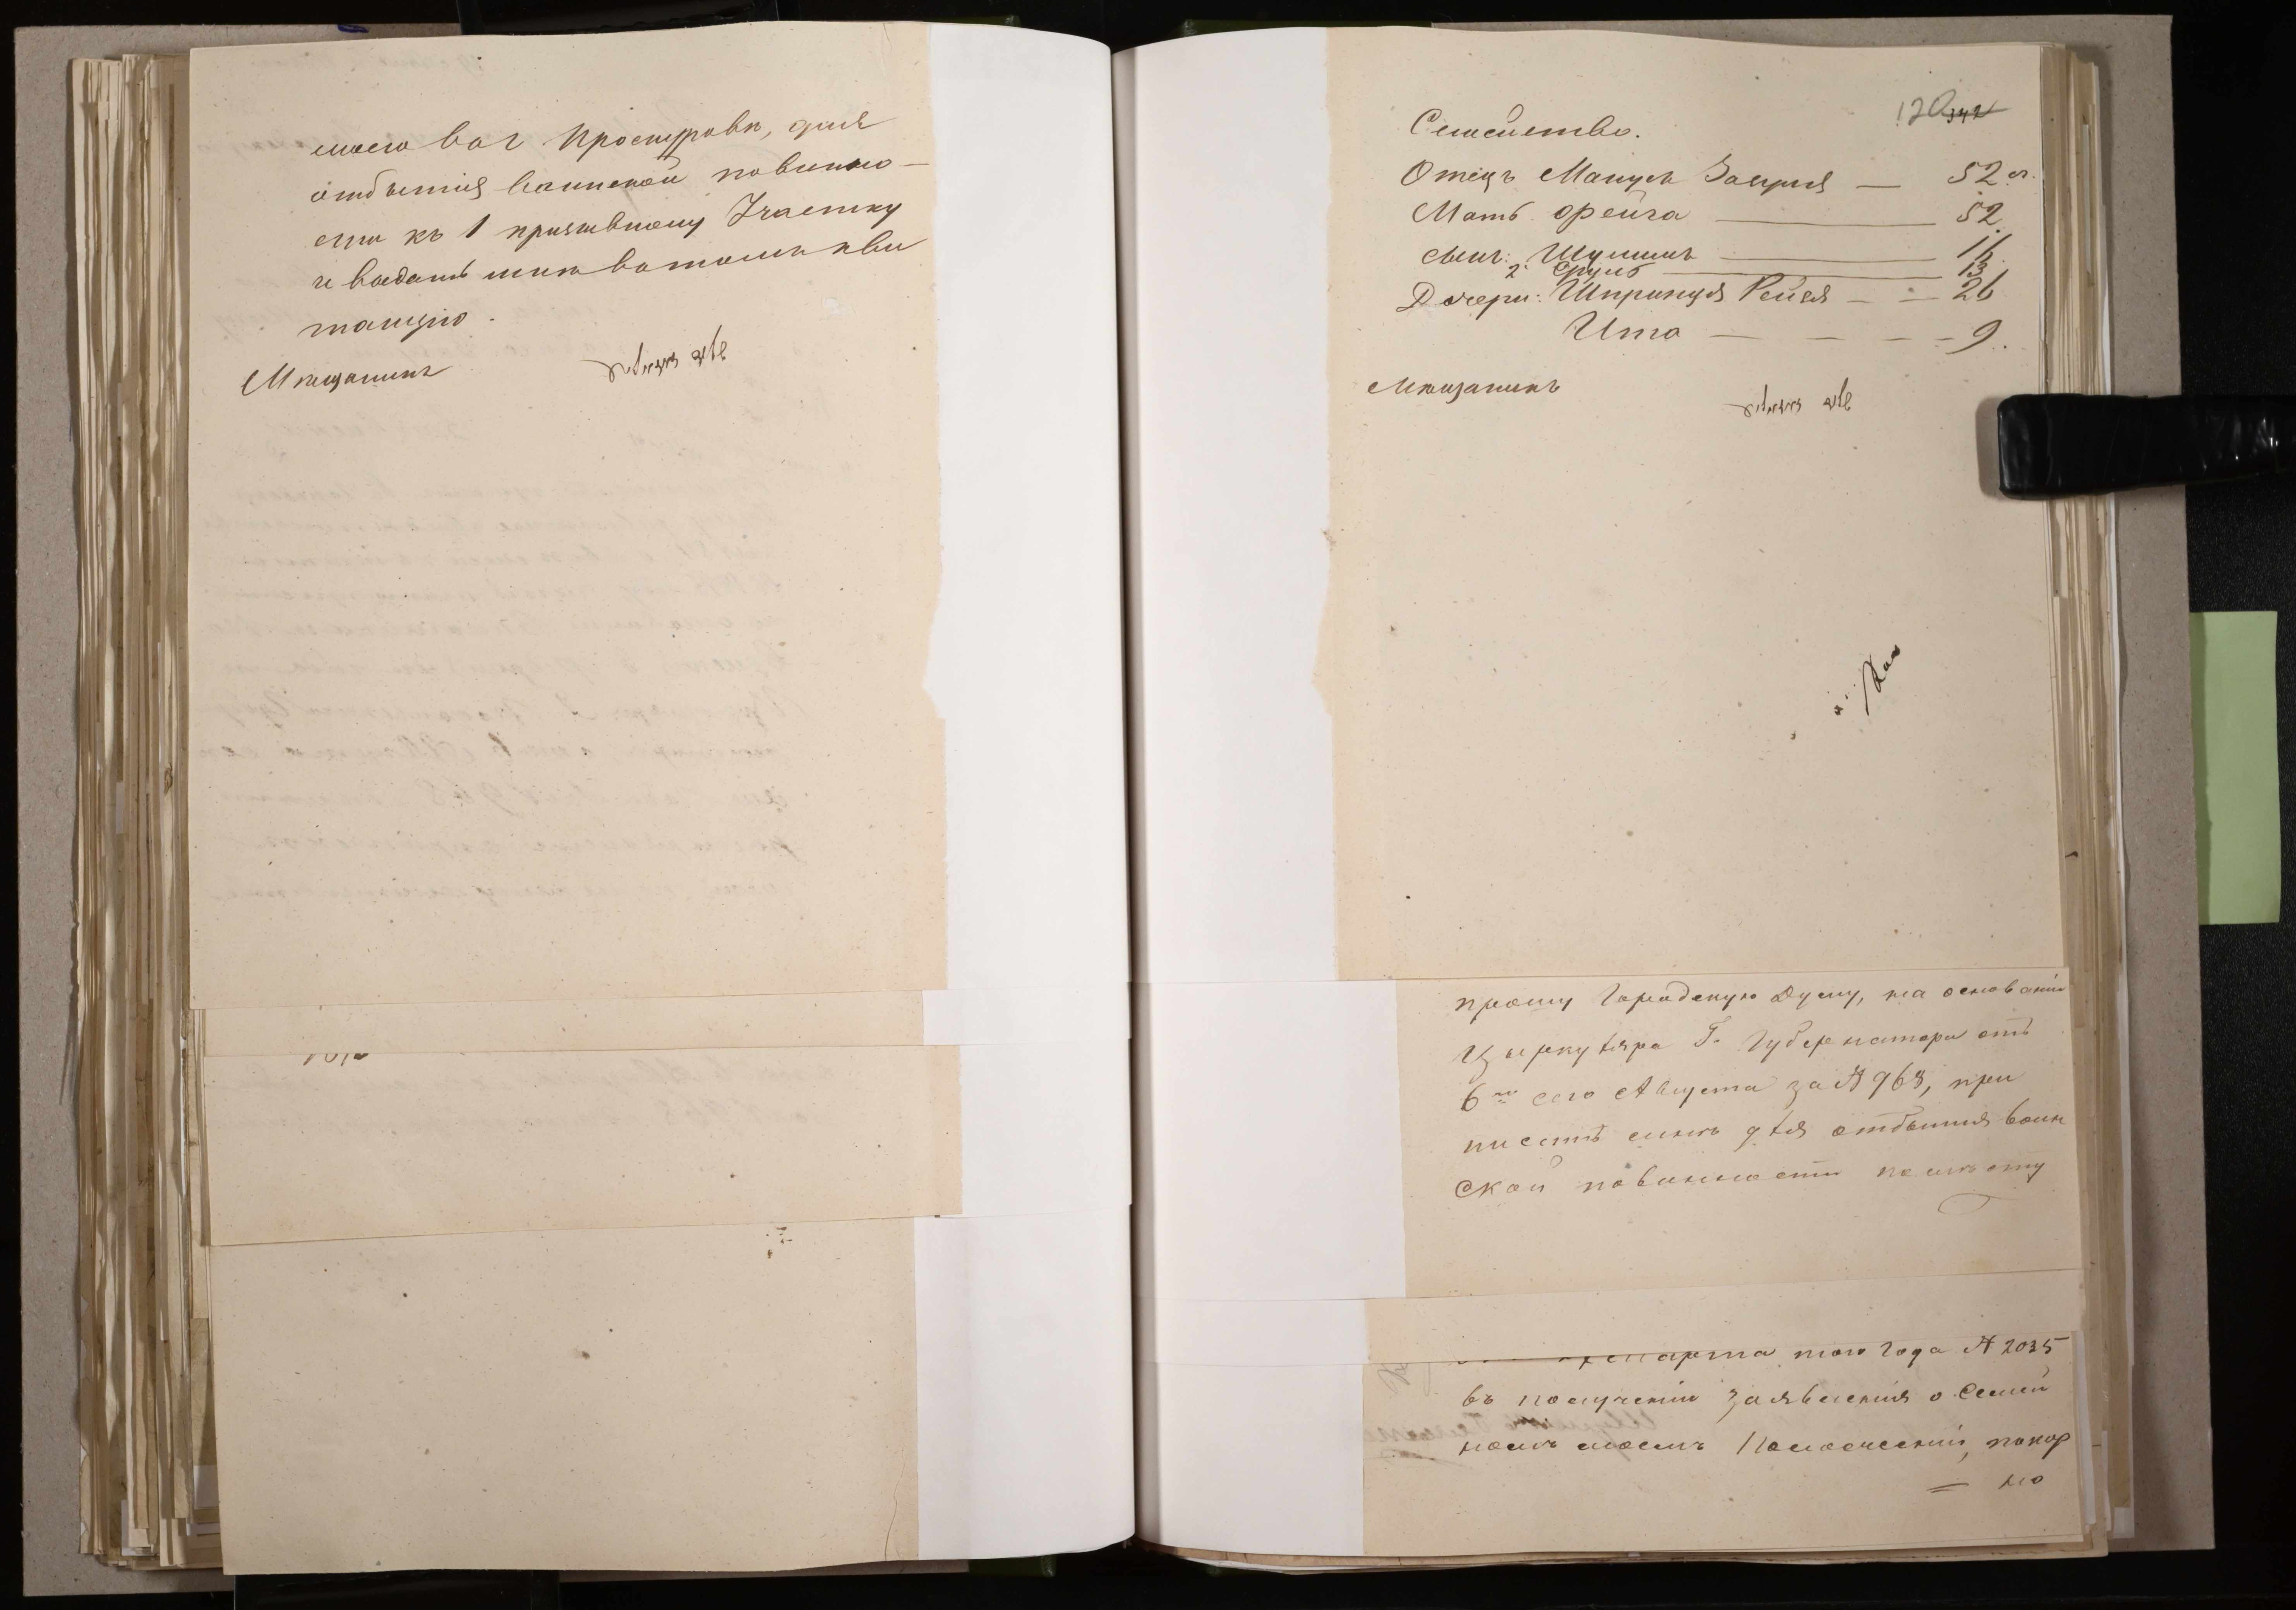 моего во г Проскуровѣ, для
отбытія воинской повинно-
сти къ 1 призывному Участку
и выдать мнѣ въ томъ кви
танцію.
Мѣщанинъ
120 342
Семейство.
Отецъ Манусъ — 52 л.
Мать Фрейга — 52.
Сын: Шулимъ — 16.
2 Сруль — 13
Дочери: Шпринця Рейзя — 26
Ита — 9.
Мѣщанинъ
прошу Городскую Думу, на основаніи
Циркуляра Г. Губернатора отъ
6го сего Августа за № 963, при
писать меня для отбытія воин
ской повинности по мѣсту
Марта того года № 2035
въ полученіи заявленія о Семей
номъ моемъ Положеніи, покор
= но